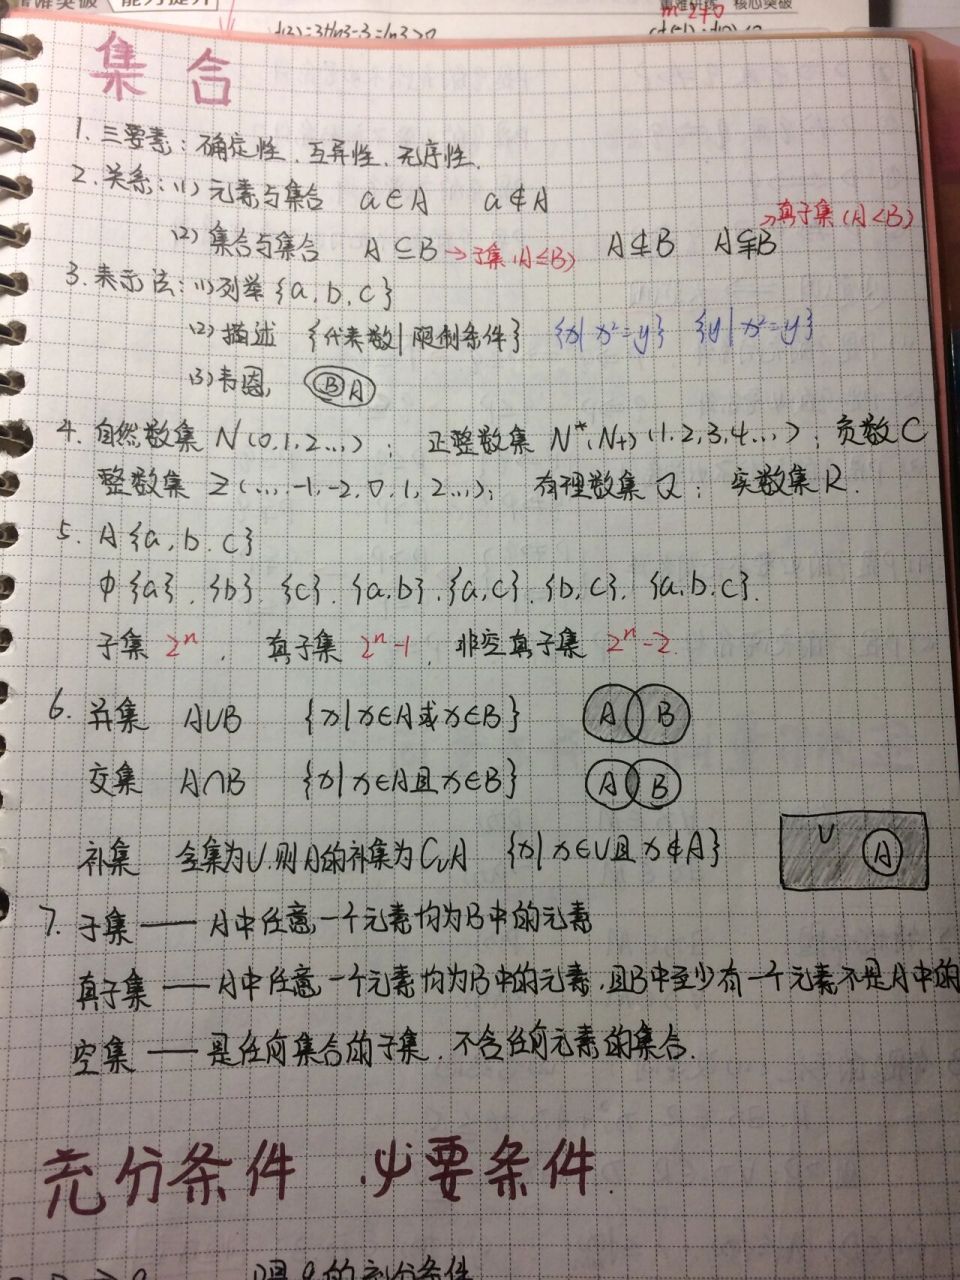 核心突破
m-2≠0
集合
1. 三要素：确定性、互异性、无序性.
2. 关系：(1) 元素与集合 a∈A a∉A
→真子集(A<B)
(2) 集合与集合 A⊆B →子集(A≤B) A⊈B A⫋B
3. 表示法：(1)列举{a,b,c}
(2)描述 {代表数|限制条件} {x|x²=y} {y|x²=y}
(3)韦恩 B A
4. 自然数集 N(0,1,2...)； 正整数集 N*(N+)(1,2,3,4...)；负数C
整数集 Z(...,-1,-2,0,1,2...)； 有理数集Q； 实数集R.
5. A{a,b.c}
Φ{a}.{b}.{c}.{a.b}.{a,c}.{b,c}.{a.b.c}.
子集 2ⁿ ， 真子集 2ⁿ-1 ， 非空真子集 2ⁿ-2.
6. 并集 A∪B {x|x∈A或x∈B} A B
交集 A∩B {x|x∈A且x∈B} A B
补集 全集为U.则A的补集为CᵤA {x|x∈U且x∉A} U A
7. 子集——A中任意一个元素均为B中的元素
真子集——A中任意一个元素均为B中的元素,且B中至少有一个元素不是A中的
空集——是任何集合的子集.不含任何元素的集合.
充分条件.必要条件.
的充分条件